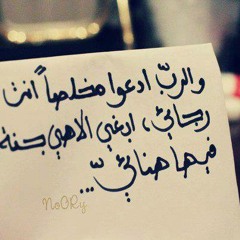 والربّ ادعوا مخلصاً أنت
رجائي ، ابغي الاهي جنة
فيها هنائيّ ...
NoORy